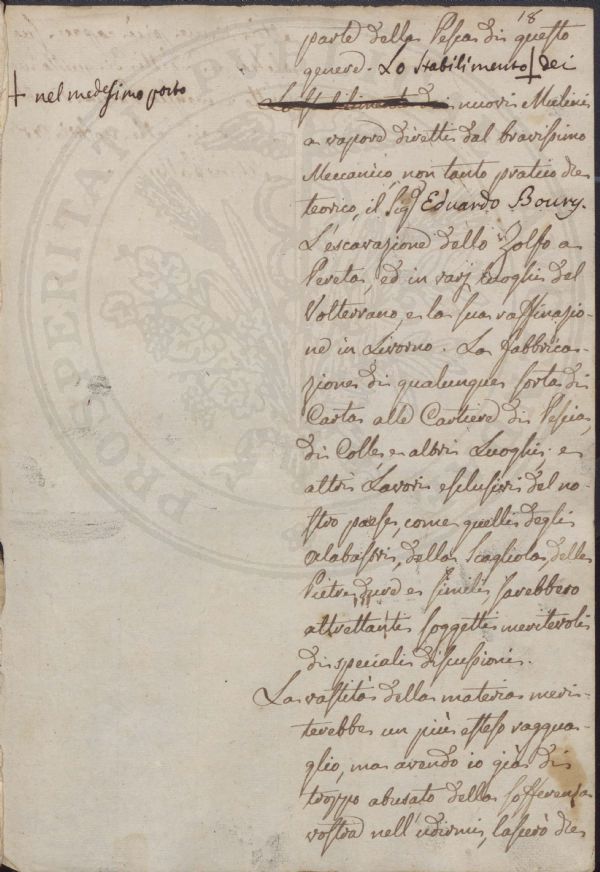 18
parte della Pesca di questo
genere. Lo Stabilimento † dei
† nel medesimo porto
Lo Stabilimento dei nuovi Mulini
a vapore diretti dal bravissimo
Meccanico, non tanto pratico che
teorico, il Sigr Eduardo Boury.
L'escavazione dello Zolfo a
Pereta, ed in varj Luoghi del
Volterrano, e la sua raffinazio-
ne in Livorno. La fabbrica-
zione di qualunque sorta di
Carta alle Cartiere di Pescia,
di Colle e altri Luoghi; e
altri Lavori esclusivi del no-
stro paese, come quelli degli
Alabastri, della Scagliola, delle
Pietre dure e simili sarebbero
altrettanti soggetti meritevoli
di speciali discussioni.
La vastità della materia meri-
terebbe un più esteso raggua-
glio, ma avendo io già di
troppo abusato della sofferenza
vostra nell'udirmi, lascerò che
PROSPERITAS